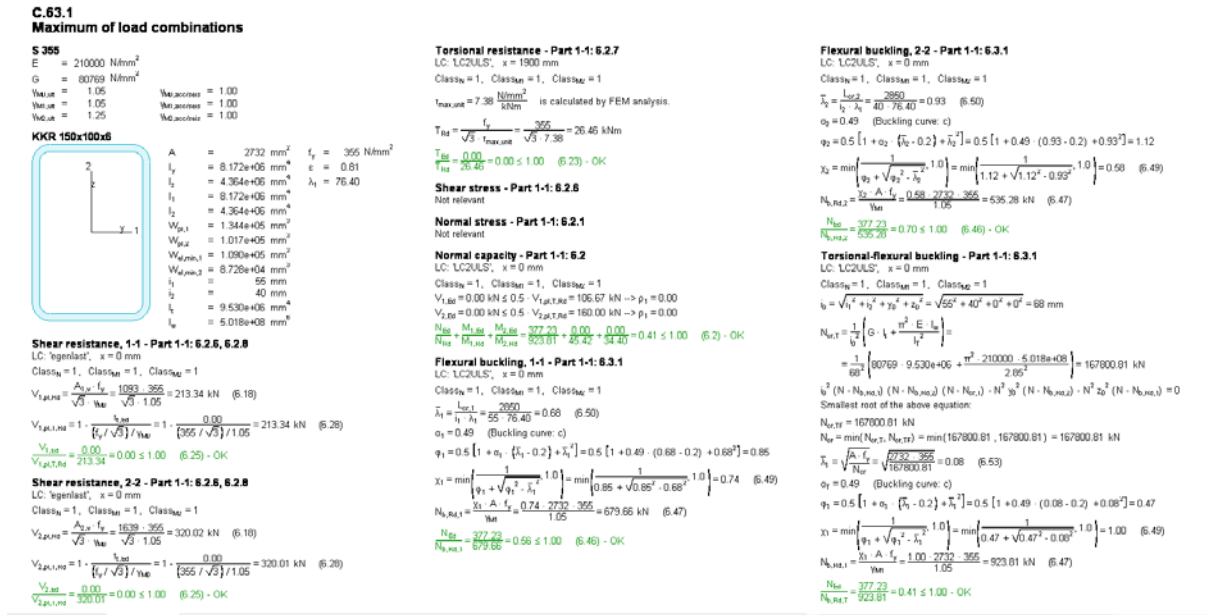 C.63.1
Maximum of load combinations
S 355
E = 210000 N/mm²
G = 80769 N/mm²
γM0,ult = 1.05 γM0,acc/seis = 1.00
γM1,ult = 1.05 γM1,acc/seis = 1.00
γM2,ult = 1.25 γM2,acc/seis = 1.00
KKR 150x100x6
2
z
y 1
A = 2732 mm² fy = 355 N/mm²
Iy = 8.172e+06 mm⁴ ε = 0.81
Iz = 4.364e+06 mm⁴ λ1 = 76.40
I1 = 8.172e+06 mm⁴
I2 = 4.364e+06 mm⁴
Wpl,1 = 1.344e+05 mm³
Wpl,2 = 1.017e+05 mm³
Wel,min,1 = 1.090e+05 mm³
Wel,min,2 = 8.728e+04 mm³
i1 = 55 mm
i2 = 40 mm
It = 9.530e+06 mm⁴
Iw = 5.018e+08 mm⁶
Shear resistance, 1-1 - Part 1-1: 6.2.6, 6.2.8
LC: 'egenlast', x = 0 mm
ClassN = 1, ClassM1 = 1, ClassM2 = 1
V1,pl,Rd = A1,v · fy / (√3 · γM0) = 1093 · 355 / (√3 · 1.05) = 213.34 kN (6.18)
V1,pl,T,Rd = 1 - τt,Ed / ((fy / √3) / γM0) = 1 - 0.00 / ((355 / √3) / 1.05) = 213.34 kN (6.28)
V1,Ed / V1,pl,T,Rd = 0.00 / 213.34 = 0.00 ≤ 1.00 (6.25) - OK
Shear resistance, 2-2 - Part 1-1: 6.2.6, 6.2.8
LC: 'egenlast', x = 0 mm
ClassN = 1, ClassM1 = 1, ClassM2 = 1
V2,pl,Rd = A2,v · fy / (√3 · γM0) = 1639 · 355 / (√3 · 1.05) = 320.02 kN (6.18)
V2,pl,T,Rd = 1 - τt,Ed / ((fy / √3) / γM0) = 1 - 0.00 / ((355 / √3) / 1.05) = 320.01 kN (6.28)
V2,Ed / V2,pl,T,Rd = 0.00 / 320.01 = 0.00 ≤ 1.00 (6.25) - OK
Torsional resistance - Part 1-1: 6.2.7
LC: 'LC2ULS', x = 1900 mm
ClassN = 1, ClassM1 = 1, ClassM2 = 1
τmax,unit = 7.38 N/mm² / kNm is calculated by FEM analysis.
TRd = fy / (√3 · τmax,unit) = 355 / (√3 · 7.38) = 26.46 kNm
TEd / TRd = 0.00 / 26.46 = 0.00 ≤ 1.00 (6.23) - OK
Shear stress - Part 1-1: 6.2.6
Not relevant
Normal stress - Part 1-1: 6.2.1
Not relevant
Normal capacity - Part 1-1: 6.2
LC: 'LC2ULS', x = 0 mm
ClassN = 1, ClassM1 = 1, ClassM2 = 1
V1,Ed = 0.00 kN ≤ 0.5 · V1,pl,T,Rd = 106.67 kN --> ρ1 = 0.00
V2,Ed = 0.00 kN ≤ 0.5 · V2,pl,T,Rd = 160.00 kN --> ρ1 = 0.00
NEd / NRd + M1,Ed / M1,Rd + M2,Ed / M2,Rd = 377.23 / 923.81 + 0.00 / 45.42 + 0.00 / 34.40 = 0.41 ≤ 1.00 (6.2) - OK
Flexural buckling, 1-1 - Part 1-1: 6.3.1
LC: 'LC2ULS', x = 0 mm
ClassN = 1, ClassM1 = 1, ClassM2 = 1
λ̄1 = Lcr,1 / (i1 · λ1) = 2850 / (55 · 76.40) = 0.68 (6.50)
α1 = 0.49 (Buckling curve: c)
φ1 = 0.5 [1 + α1 · (λ̄1 - 0.2) + λ̄1²] = 0.5 [1 + 0.49 · (0.68 - 0.2) + 0.68²] = 0.85
χ1 = min(1 / (φ1 + √(φ1² - λ̄1²)), 1.0) = min(1 / (0.85 + √(0.85² - 0.68²)), 1.0) = 0.74 (6.49)
Nb,Rd,1 = χ1 · A · fy / γM1 = 0.74 · 2732 · 355 / 1.05 = 679.66 kN (6.47)
NEd / Nb,Rd,1 = 377.23 / 679.66 = 0.56 ≤ 1.00 (6.46) - OK
Flexural buckling, 2-2 - Part 1-1: 6.3.1
LC: 'LC2ULS', x = 0 mm
ClassN = 1, ClassM1 = 1, ClassM2 = 1
λ̄2 = Lcr,2 / (i2 · λ1) = 2850 / (40 · 76.40) = 0.93 (6.50)
α2 = 0.49 (Buckling curve: c)
φ2 = 0.5 [1 + α2 · (λ̄2 - 0.2) + λ̄2²] = 0.5 [1 + 0.49 · (0.93 - 0.2) + 0.93²] = 1.12
χ2 = min(1 / (φ2 + √(φ2² - λ̄2²)), 1.0) = min(1 / (1.12 + √(1.12² - 0.93²)), 1.0) = 0.58 (6.49)
Nb,Rd,2 = χ2 · A · fy / γM1 = 0.58 · 2732 · 355 / 1.05 = 535.28 kN (6.47)
NEd / Nb,Rd,2 = 377.23 / 535.28 = 0.70 ≤ 1.00 (6.46) - OK
Torsional-flexural buckling - Part 1-1: 6.3.1
LC: 'LC2ULS', x = 0 mm
ClassN = 1, ClassM1 = 1, ClassM2 = 1
i0 = √(i1² + i2² + y0² + z0²) = √(55² + 40² + 0² + 0²) = 68 mm
Ncr,T = 1 / i0² (G · It + π² · E · Iw / lT²) =
= 1 / 68² (80769 · 9.530e+06 + π² · 210000 · 5.018e+08 / 2.85²) = 167800.81 kN
i0² (N - Nb,Rd,1) (N - Nb,Rd,2) (N - Ncr,T) - N² y0² (N - Nb,Rd,2) - N² z0² (N - Nb,Rd,1) = 0
Smallest root of the above equation:
Ncr,TF = 167800.81 kN
Ncr = min(Ncr,T, Ncr,TF) = min(167800.81 , 167800.81) = 167800.81 kN
λ̄1 = √(A · fy / Ncr) = √(2732 · 355 / 167800.81) = 0.08 (6.53)
αT = 0.49 (Buckling curve: c)
φ1 = 0.5 [1 + α1 · (λ̄1 - 0.2) + λ̄1²] = 0.5 [1 + 0.49 · (0.08 - 0.2) + 0.08²] = 0.47
χ1 = min(1 / (φ1 + √(φ1² - λ̄1²)), 1.0) = min(1 / (0.47 + √(0.47² - 0.08²)), 1.0) = 1.00 (6.49)
Nb,Rd,1 = χ1 · A · fy / γM1 = 1.00 · 2732 · 355 / 1.05 = 923.81 kN (6.47)
NEd / Nb,Rd,T = 377.23 / 923.81 = 0.41 ≤ 1.00 - OK